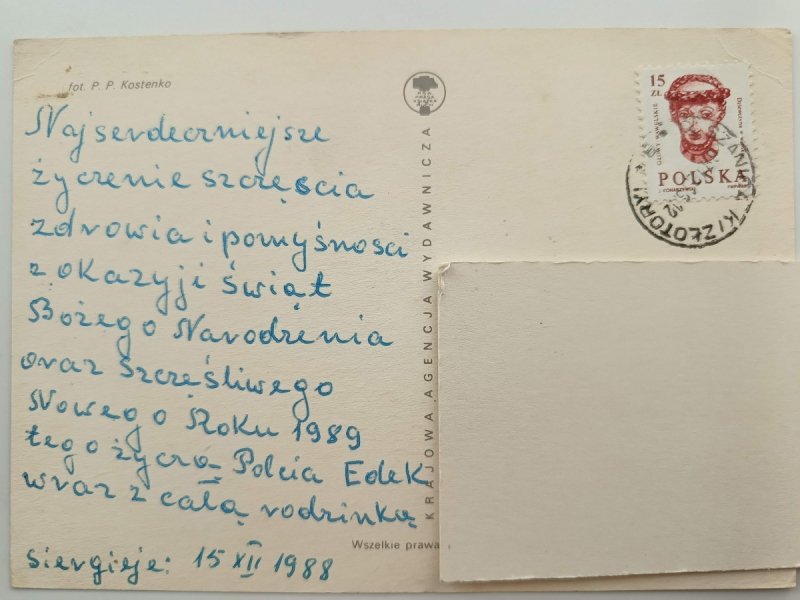 fot. P. P. Kostenko
Najserdeczniejsze
życzenie szczęścia
zdrowia i pomyśnosci
z okazyji świąt
Bożego Narodzenia
oraz szczęśliwego
Nowego Roku 1989
tego życzą Polcia Edek
wraz z całą rodzinką
siergieje: 15 XII 1988
KRAJOWA AGENCJA WYDAWNICZA
Wszelkie prawa
15 ZŁ
GŁOWY WAWELSKIE
POLSKA
K/ZŁOTORYI